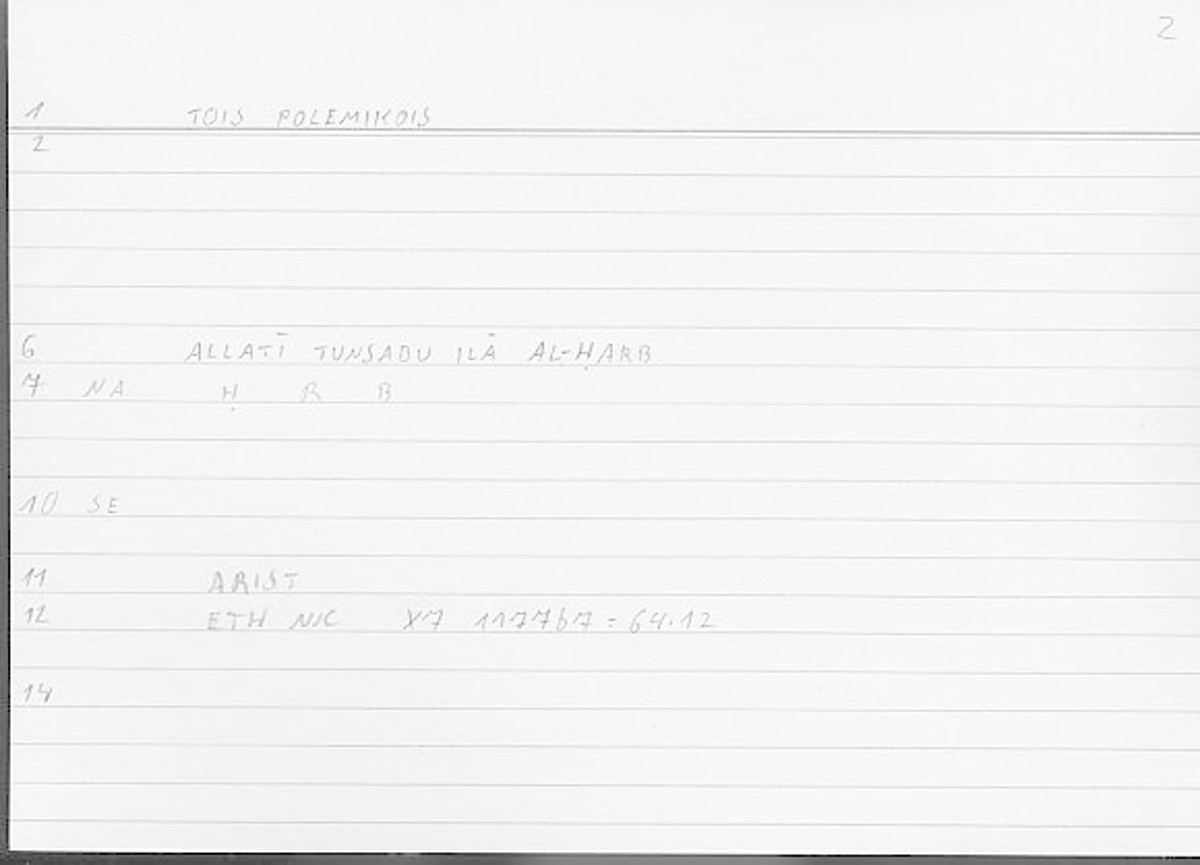 2
1 TOIS POLEMIKOIS
2
6 ALLATĪ TUNSABU ILĀ AL-ḤARB
7 NA Ḥ R B
10 SE
11 ARIST
12 ETH NIC X7 1177b7 = 64.12
14